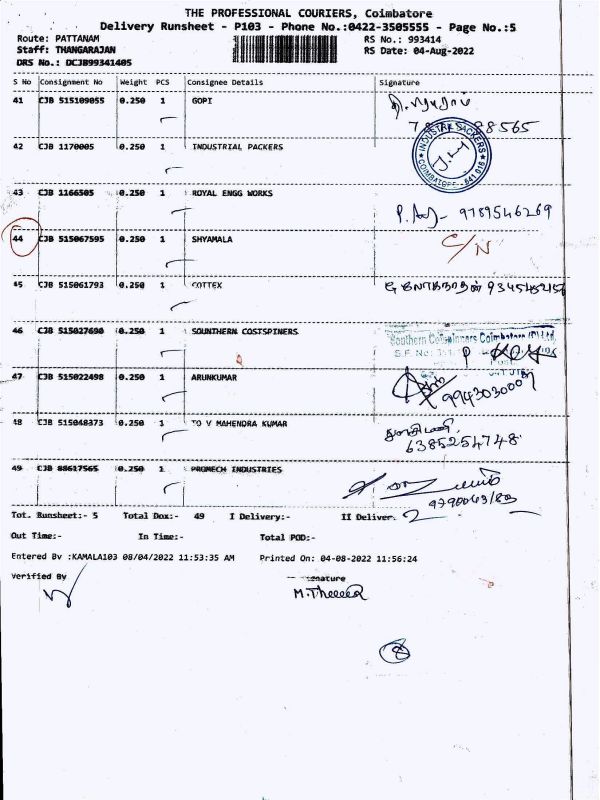 THE PROFESSIONAL COURIERS, Coimbatore
Delivery Runsheet - P103 - Phone No.:0422-3505555 - Page No.:5
Route: PATTANAM RS No.: 993414
Staff: THANGARAJAN RS Date: 04-Aug-2022
DRS No.: DCJB99341405
S No Consignment No Weight PCS Consignee Details Signature
41 CJB 515109055 0.250 1 GOPI
42 CJB 1170005 0.250 1 INDUSTRIAL PACKERS
INDUSTRIAL PACKERS
COIMBATORE - 641 016
43 CJB 1166505 0.250 1 ROYAL ENGG WORKS
9789546269
44 CJB 515067595 0.250 1 SHYAMALA C/N
45 CJB 515061793 0.250 1 COTTEX
46 CJB 515027690 0.250 1 SOUNTHERN COSTSPINERS
Southern Cotspinners Coimbatore (P) Ltd
47 CJB 515022498 0.250 1 ARUNKUMAR
9943030009
48 CJB 515048373 0.250 1 TO V MAHENDRA KUMAR
துளசிமணி
6385254748
49 CJB 88617565 0.250 1 PROMECH INDUSTRIES
Tot. Runsheet:- 5 Total Dox:- 49 I Delivery:- II Deliver. 2
Out Time:- In Time:- Total POD:-
Entered By :KAMALA103 08/04/2022 11:53:35 AM Printed On: 04-08-2022 11:56:24
Verified By
8